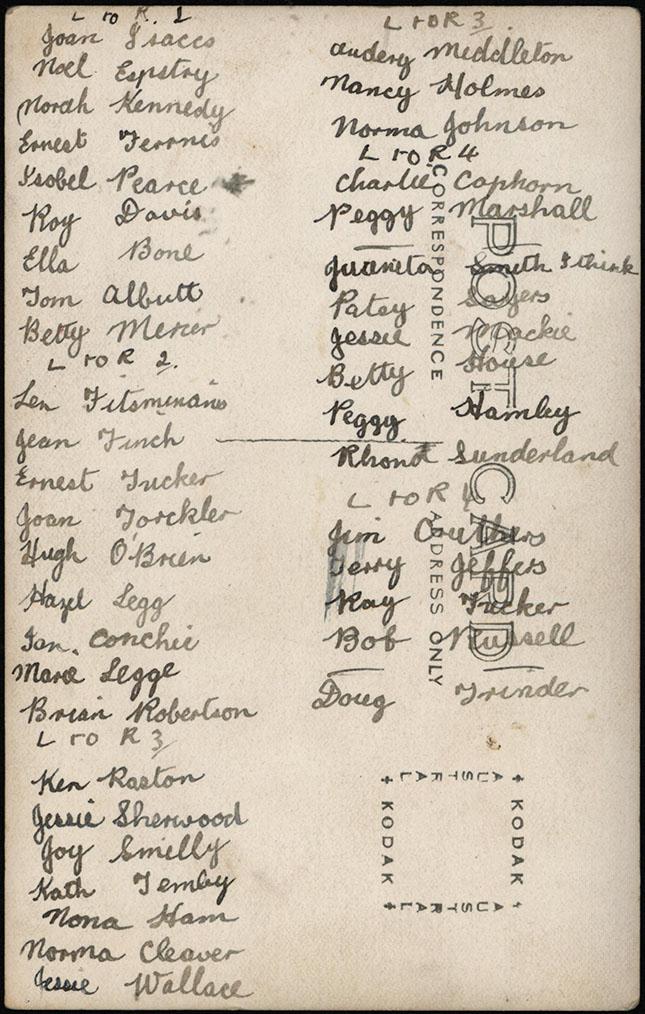 L TO R. 1
Joan Isaccs
Noel Espstry
Norah Kennedy
Ernest Ferrnis
Isobel Pearce
Roy Davis
Ella Bone
Tom Albutt
Betty Mercer
L TO R 2.
Len
Jean Finch
Ernest Tucker
Joan Torckler
Hugh O'Brien
Hazel Legg
Ian. Conchie
Marie Legge
Brian Robertson
L TO R 3
Ken Raston
Jessie Sherwood
Joy Smelly
Kath Temby
Nona Ham
Norma Cleaver
Jessie Wallace
L TO R 3.
Audery Middleton
Nancy Holmes
Norma Johnson
L TO R 4
Charlie Caphorn
Peggy Marshall
Juaneta Smith I think
Patsy Sayers
Jessie Mackie
Betty House
Peggy Hamley
Rhonda Sunderland
L TO R 4
Jim
Terry Jeffers
Ray Tucker
Bob Russell
Doug Trinder
POST CARD
CORRESPONDENCE
ADDRESS ONLY
KODAK
AUSTRAL
KODAK
AUSTRAL